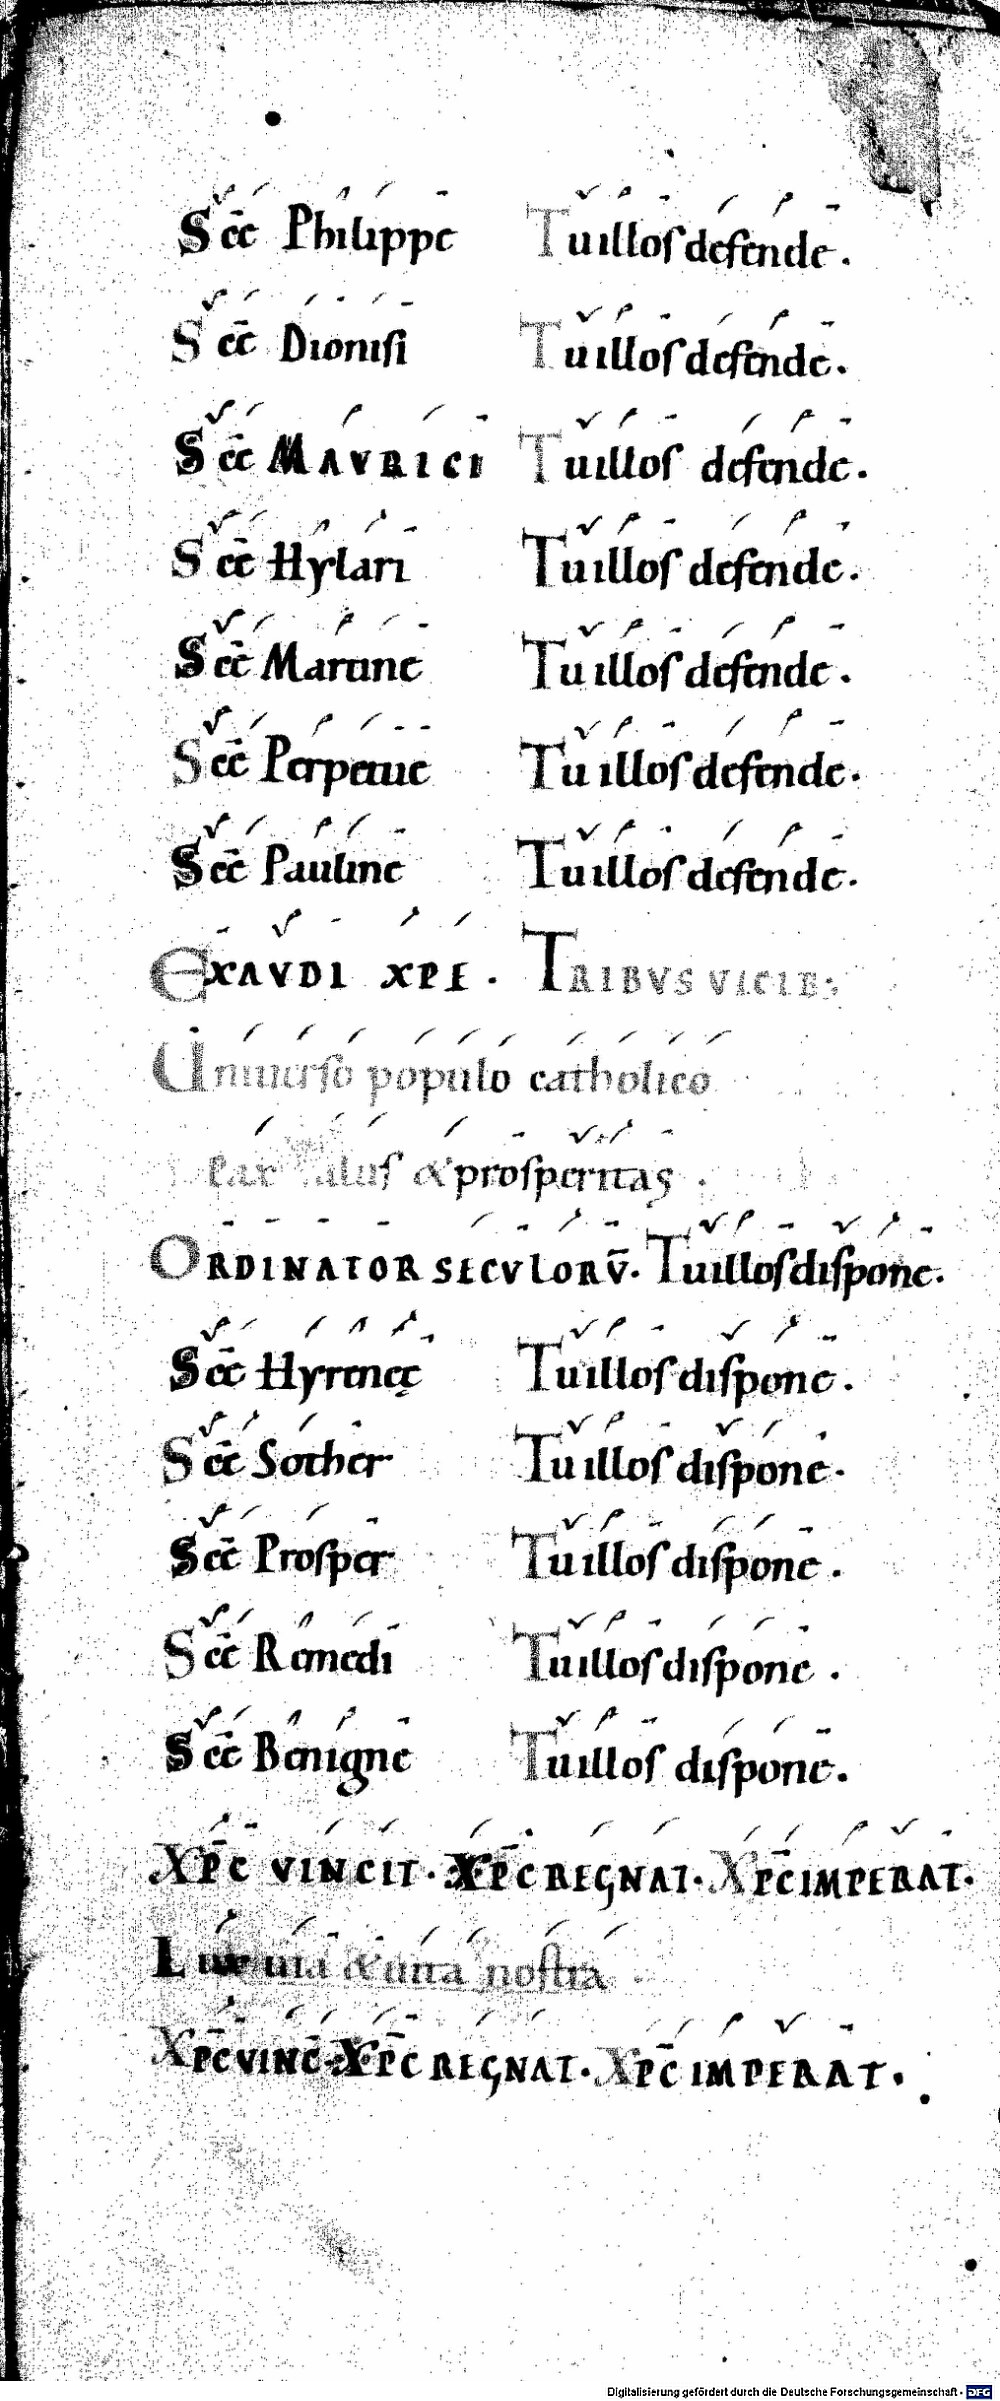 Scē Philippe Tu illos defende.
Scē Dionisi Tu illos defende.
Scē MAVRICI Tu illos defende.
Scē Hylari Tu illos defende.
Scē Martine Tu illos defende.
Scē Perpetue Tu illos defende.
Scē Pauline Tu illos defende.
EXAVDI XPE. TRIBVS VICIB;
Uniuerso populo catholico
Pax salus & prosperitas.
ORDINATOR SECVLORV̄. Tu illos dispone.
Scē Hyrineę Tu illos dispone.
Scē Sother Tu illos dispone.
Scē Prosper Tu illos dispone.
Scē Remedi Tu illos dispone.
Scē Benigne Tu illos dispone.
XP̄C VINCIT. XP̄C REGNAT. XP̄C IMPERAT.
Lux uia & uita nostra
XP̄C VINC̄. XP̄C REGNAT. XP̄C IMPERAT.
Digitalisierung gefördert durch die Deutsche Forschungsgemeinschaft - DFG